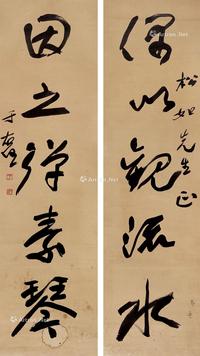 偶以觀流水
松如先生正
因之彈素琴
于右任